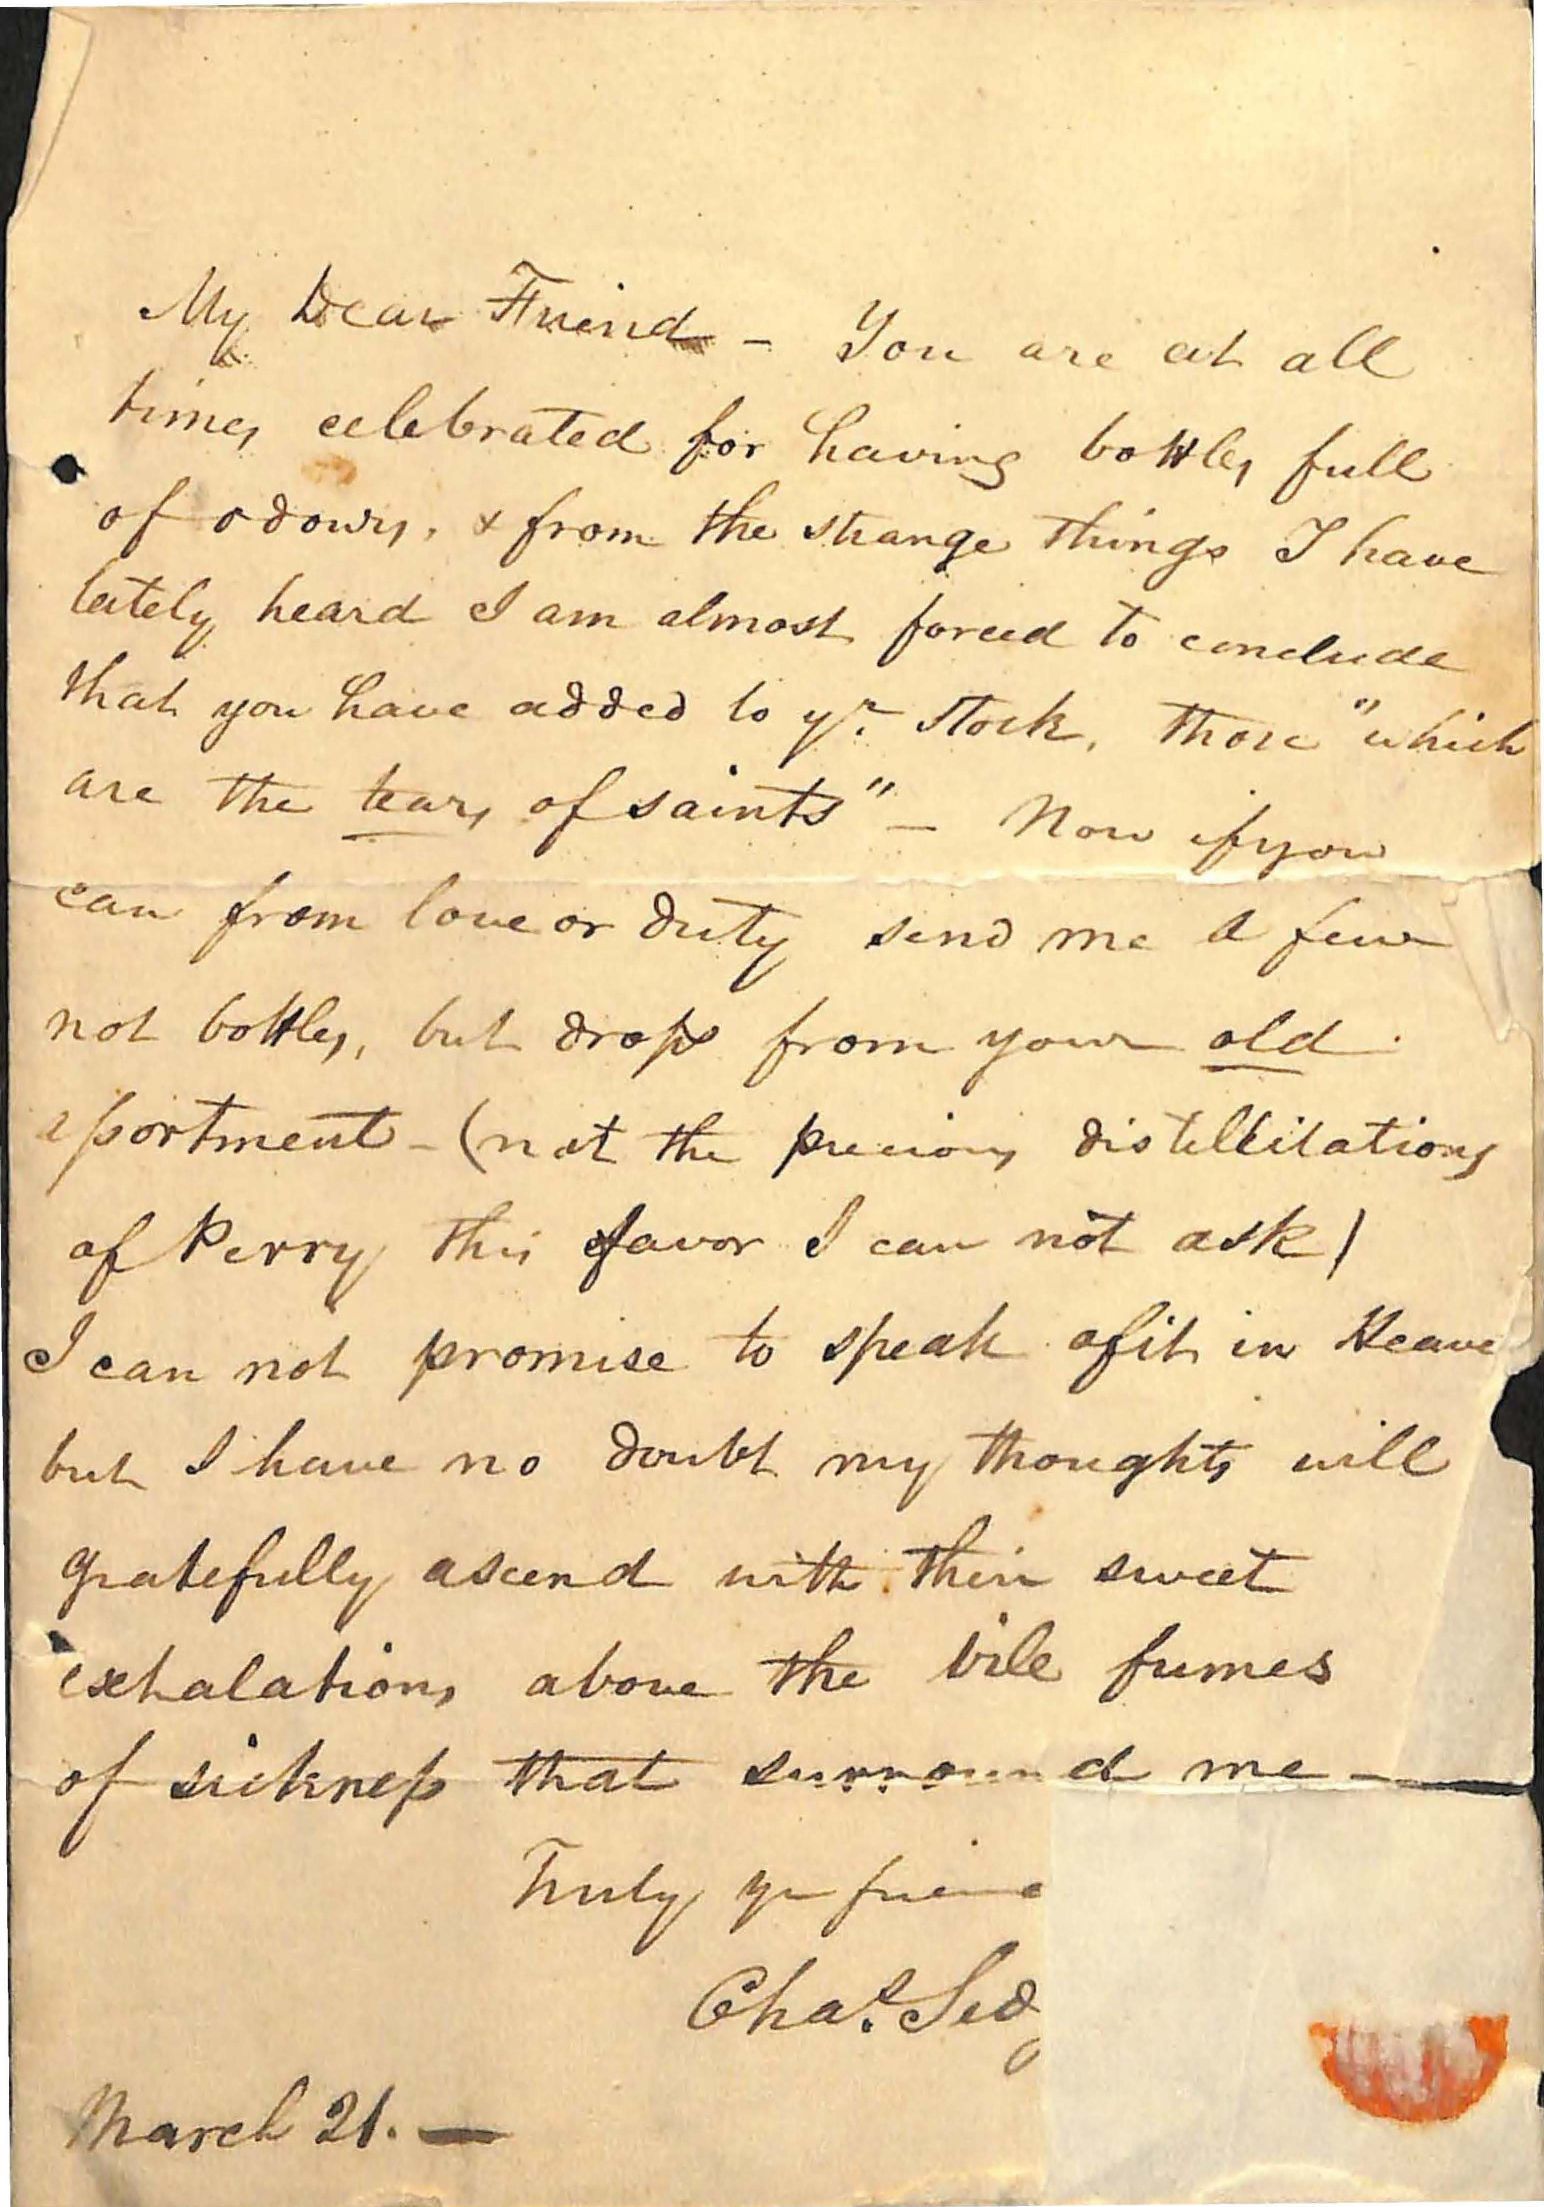 My Dear Friend - You are at all
times celebrated for having bottles full
of odours, & from the strange things I have
lately heard I am almost forced to conclude
that you have added to yr. stock, those "which
are the tears of saints" - Now if you
can from love or duty send me a few
not bottles, but drops from your old
assortment - (not the precious distellitations
of Perry this favor I can not ask)
I can not promise to speak of it in Heave
but I have no doubt my thoughts will
gratefully ascend with their sweet
exhalations above the vile fumes
of sickness that surround me -
Truly yr friend
Chas. Sedg
March 21. -